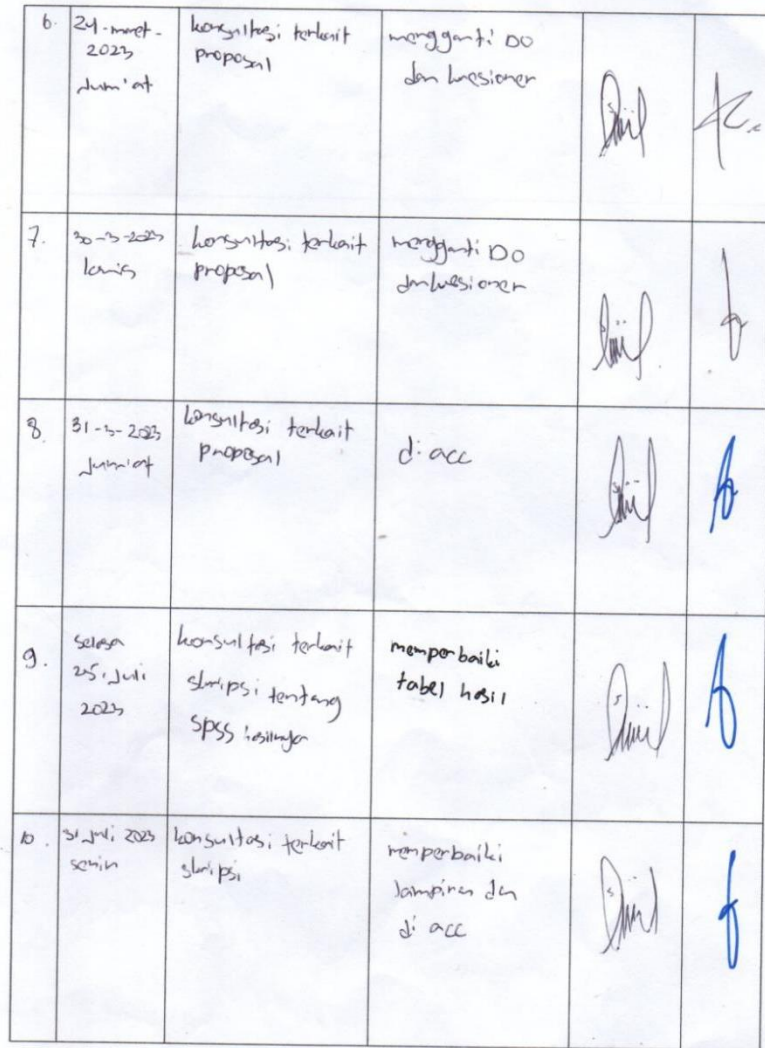 6.
24-maret-
2023
Jum'at
konsultasi terkait
proposal
mengganti DO
dan kuesioner
7.
30-3-2023
kamis
konsultasi terkait
proposal
mengganti DO
dan kuesioner
8.
31-3-2023
Jum'at
konsultasi terkait
proposal
di acc
9.
selasa
25. Juli
2023
konsultasi terkait
skripsi tentang
SPSS hasilnya
memperbaiki
tabel hasil
10.
31 Juli 2023
senin
konsultasi terkait
skripsi
memperbaiki
lampiran dan
di acc